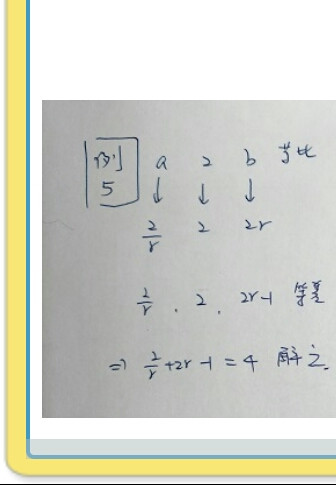 例 a 2 b 等比
5 ↓ ↓ ↓
2/r 2 2r
2/r , 2 , 2r-1 等差
⇒ 2/r+2r-1=4 解之.